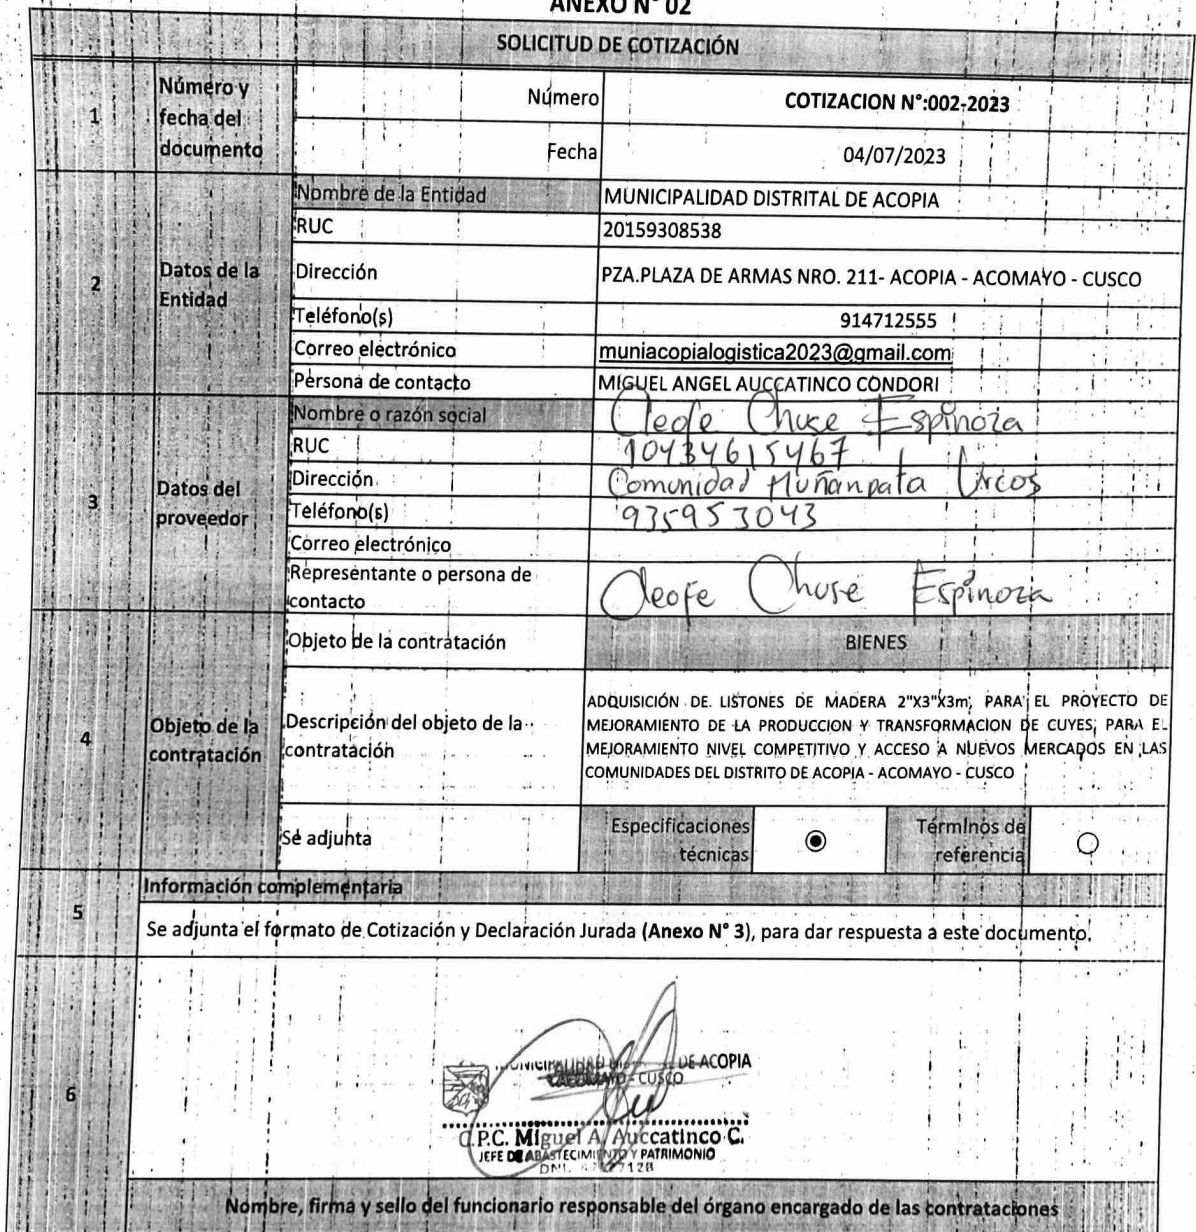 ANEXO N° 02
SOLICITUD DE COTIZACIÓN
1
Número y
fecha del
documento
Número
COTIZACION N°:002-2023
Fecha
04/07/2023
2
Datos de la
Entidad
Nombre de la Entidad
MUNICIPALIDAD DISTRITAL DE ACOPIA
RUC
20159308538
Dirección
PZA.PLAZA DE ARMAS NRO. 211- ACOPIA - ACOMAYO - CUSCO
Teléfono(s)
914712555
Correo electrónico
muniacopialogistica2023@gmail.com
Persona de contacto
MIGUEL ANGEL AUCCATINCO CONDORI
3
Datos del
proveedor
Nombre o razón social
Cleofe Chuse Espinoza
RUC
10434615467
Dirección
Comunidad Muñanpata Urcos
Teléfono(s)
935953043
Correo electrónico
Representante o persona de
contacto
Cleofe Chuse Espinoza
4
Objeto de la
contratación
Objeto de la contratación
BIENES
Descripción del objeto de la
contratación
ADQUISICIÓN DE LISTONES DE MADERA 2"X3"X3m; PARA EL PROYECTO DE
MEJORAMIENTO DE LA PRODUCCION Y TRANSFORMACION DE CUYES, PARA EL
MEJORAMIENTO NIVEL COMPETITIVO Y ACCESO A NUEVOS MERCADOS EN LAS
COMUNIDADES DEL DISTRITO DE ACOPIA - ACOMAYO - CUSCO
Se adjunta
Especificaciones
técnicas
Términos de
referencia
5
Información complementaria
Se adjunta el formato de Cotización y Declaración Jurada (Anexo N° 3), para dar respuesta a este documento.
6
DE ACOPIA
ACOMAYO - CUSCO
C.P.C. Miguel A. Auccatinco C.
JEFE DE ABASTECIMIENTO Y PATRIMONIO
DNI.
Nombre, firma y sello del funcionario responsable del órgano encargado de las contrataciones